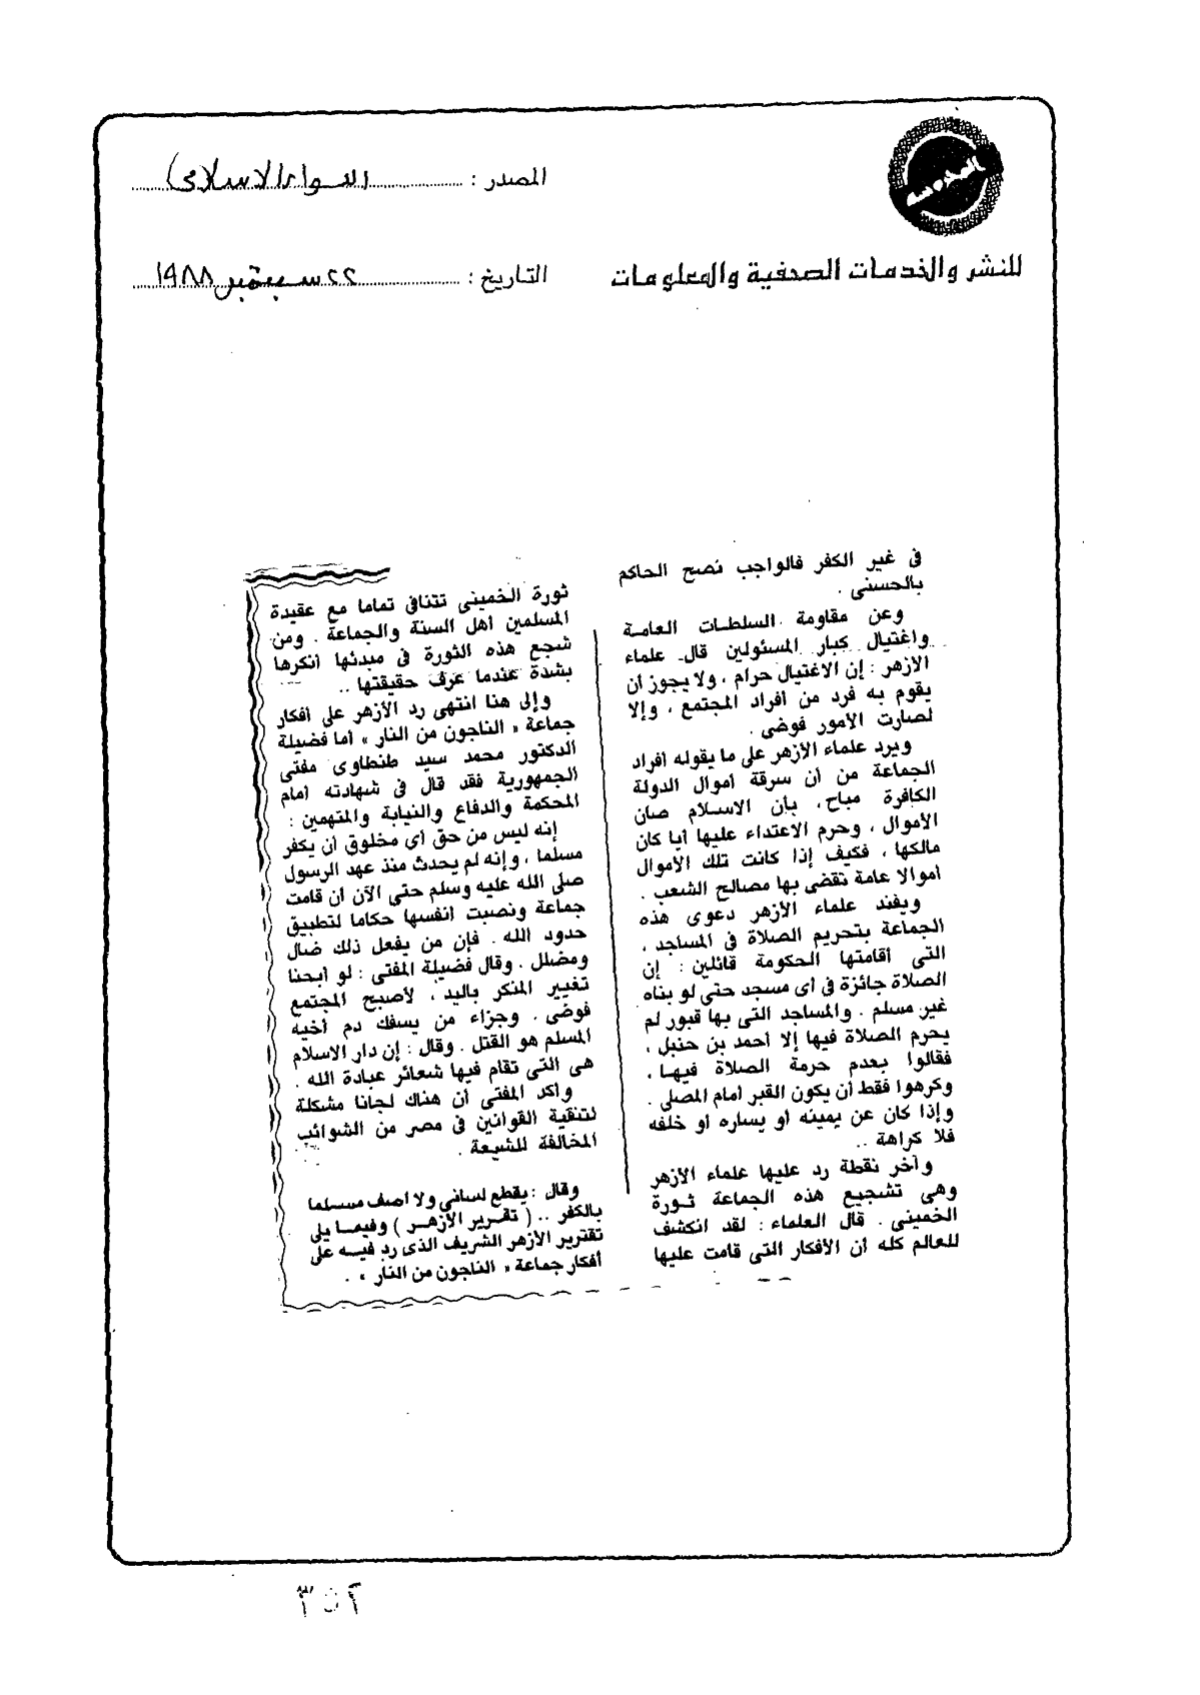 المصدر : اللواء الاسلامي
للنشر والخدمات الصحفية والمعلومات
التاريخ : ٢٢ سبتمبر ١٩٨٨
فى غير الكفر فالواجب نصح الحاكم
بالحسنى .
وعن مقاومة السلطات العامة
واغتيال كبار المسئولين قال علماء
الأزهر : إن الاغتيال حرام ، ولا يجوز أن
يقوم به فرد من أفراد المجتمع ، وإلا
لصارت الأمور فوضى .
ويرد علماء الأزهر على ما يقوله أفراد
الجماعة من أن سرقة أموال الدولة
الكافرة مباح ، بإن الاسلام صان
الأموال ، وحرم الاعتداء عليها أيا كان
مالكها ، فكيف إذا كانت تلك الأموال
أموالا عامة تقضى بها مصالح الشعب .
ويفند علماء الأزهر دعوى هذه
الجماعة بتحريم الصلاة فى المساجد ،
التى أقامتها الحكومة قائلين : إن
الصلاة جائزة فى أى مسجد حتى لو بناه
غير مسلم . والمساجد التى بها قبور لم
يحرم الصلاة فيها إلا أحمد بن حنبل ،
فقالوا بعدم حرمة الصلاة فيها ،
وكرهوا فقط أن يكون القبر أمام المصلى .
وإذا كان عن يمينه أو يساره أو خلفه
فلا كراهة ..
وآخر نقطة رد عليها علماء الأزهر
وهى تشجيع هذه الجماعة ثورة
الخمينى . قال العلماء : لقد انكشف
للعالم كله أن الأفكار التى قامت عليها
ثورة الخمينى تتنافى تماما مع عقيدة
المسلمين أهل السنة والجماعة . ومن
شجع هذه الثورة فى مبدئها أنكرها
بشدة عندما عرف حقيقتها ..
وإلى هنا انتهى رد الأزهر على أفكار
جماعة « الناجون من النار » أما فضيلة
الدكتور محمد سيد طنطاوى مفتى
الجمهورية فقد قال فى شهادته أمام
المحكمة والدفاع والنيابة والمتهمين :
إنه ليس من حق أى مخلوق أن يكفر
مسلما ، وإنه لم يحدث منذ عهد الرسول
صلى الله عليه وسلم حتى الآن أن قامت
جماعة ونصبت انفسها حكاما لتطبيق
حدود الله . فإن من يفعل ذلك ضال
ومضلل . وقال فضيلة المفتى : لو أبحنا
تغيير المنكر باليد ، لأصبح المجتمع
فوضى . وجزاء من يسفك دم أخيه
المسلم هو القتل . وقال : إن دار الاسلام
هى التى تقام فيها شعائر عبادة الله .
وأكد المفتى أن هناك لجانا مشكلة
لتنقية القوانين فى مصر من الشوائب
المخالفة للشيعة .
وقال : يقطع لسانى ولا أصف مسلما
بالكفر .. ( تقرير الأزهر ) وفيما يلى
تقترير الأزهر الشريف الذى رد فيه على
أفكار جماعة « الناجون من النار » .
٣٥٢